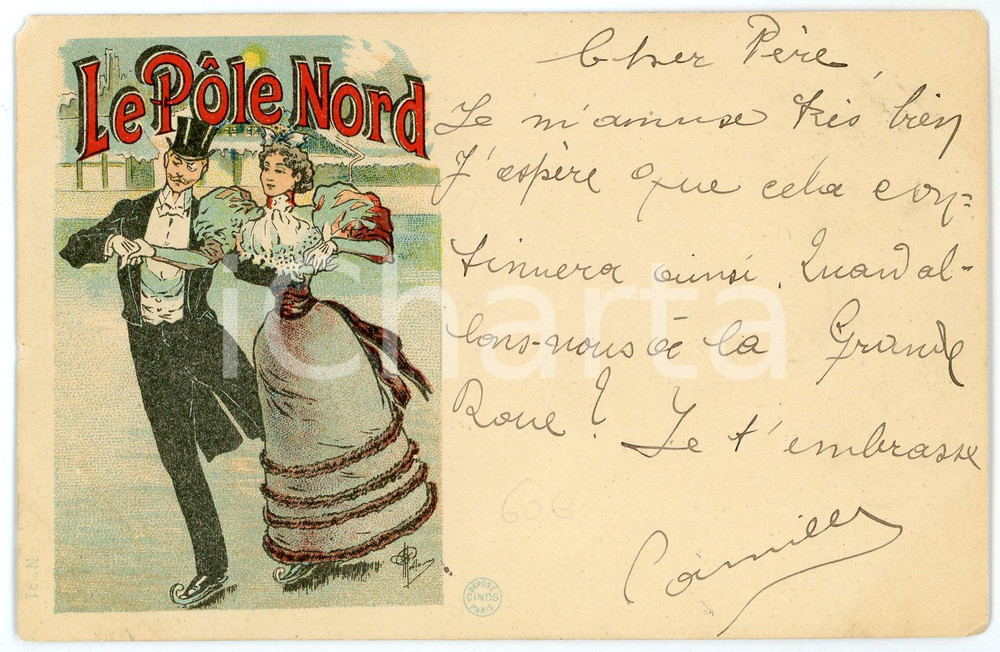 Le Pôle Nord
Cher Père,
Je m'amuse très bien
J'espère que cela con-
tinuera ainsi. Quand al-
lons-nous à la Grande
Roue? Je t'embrasse
Camille
606
N° 31
DÉPOSÉ
CINOS
PARIS
iCharta